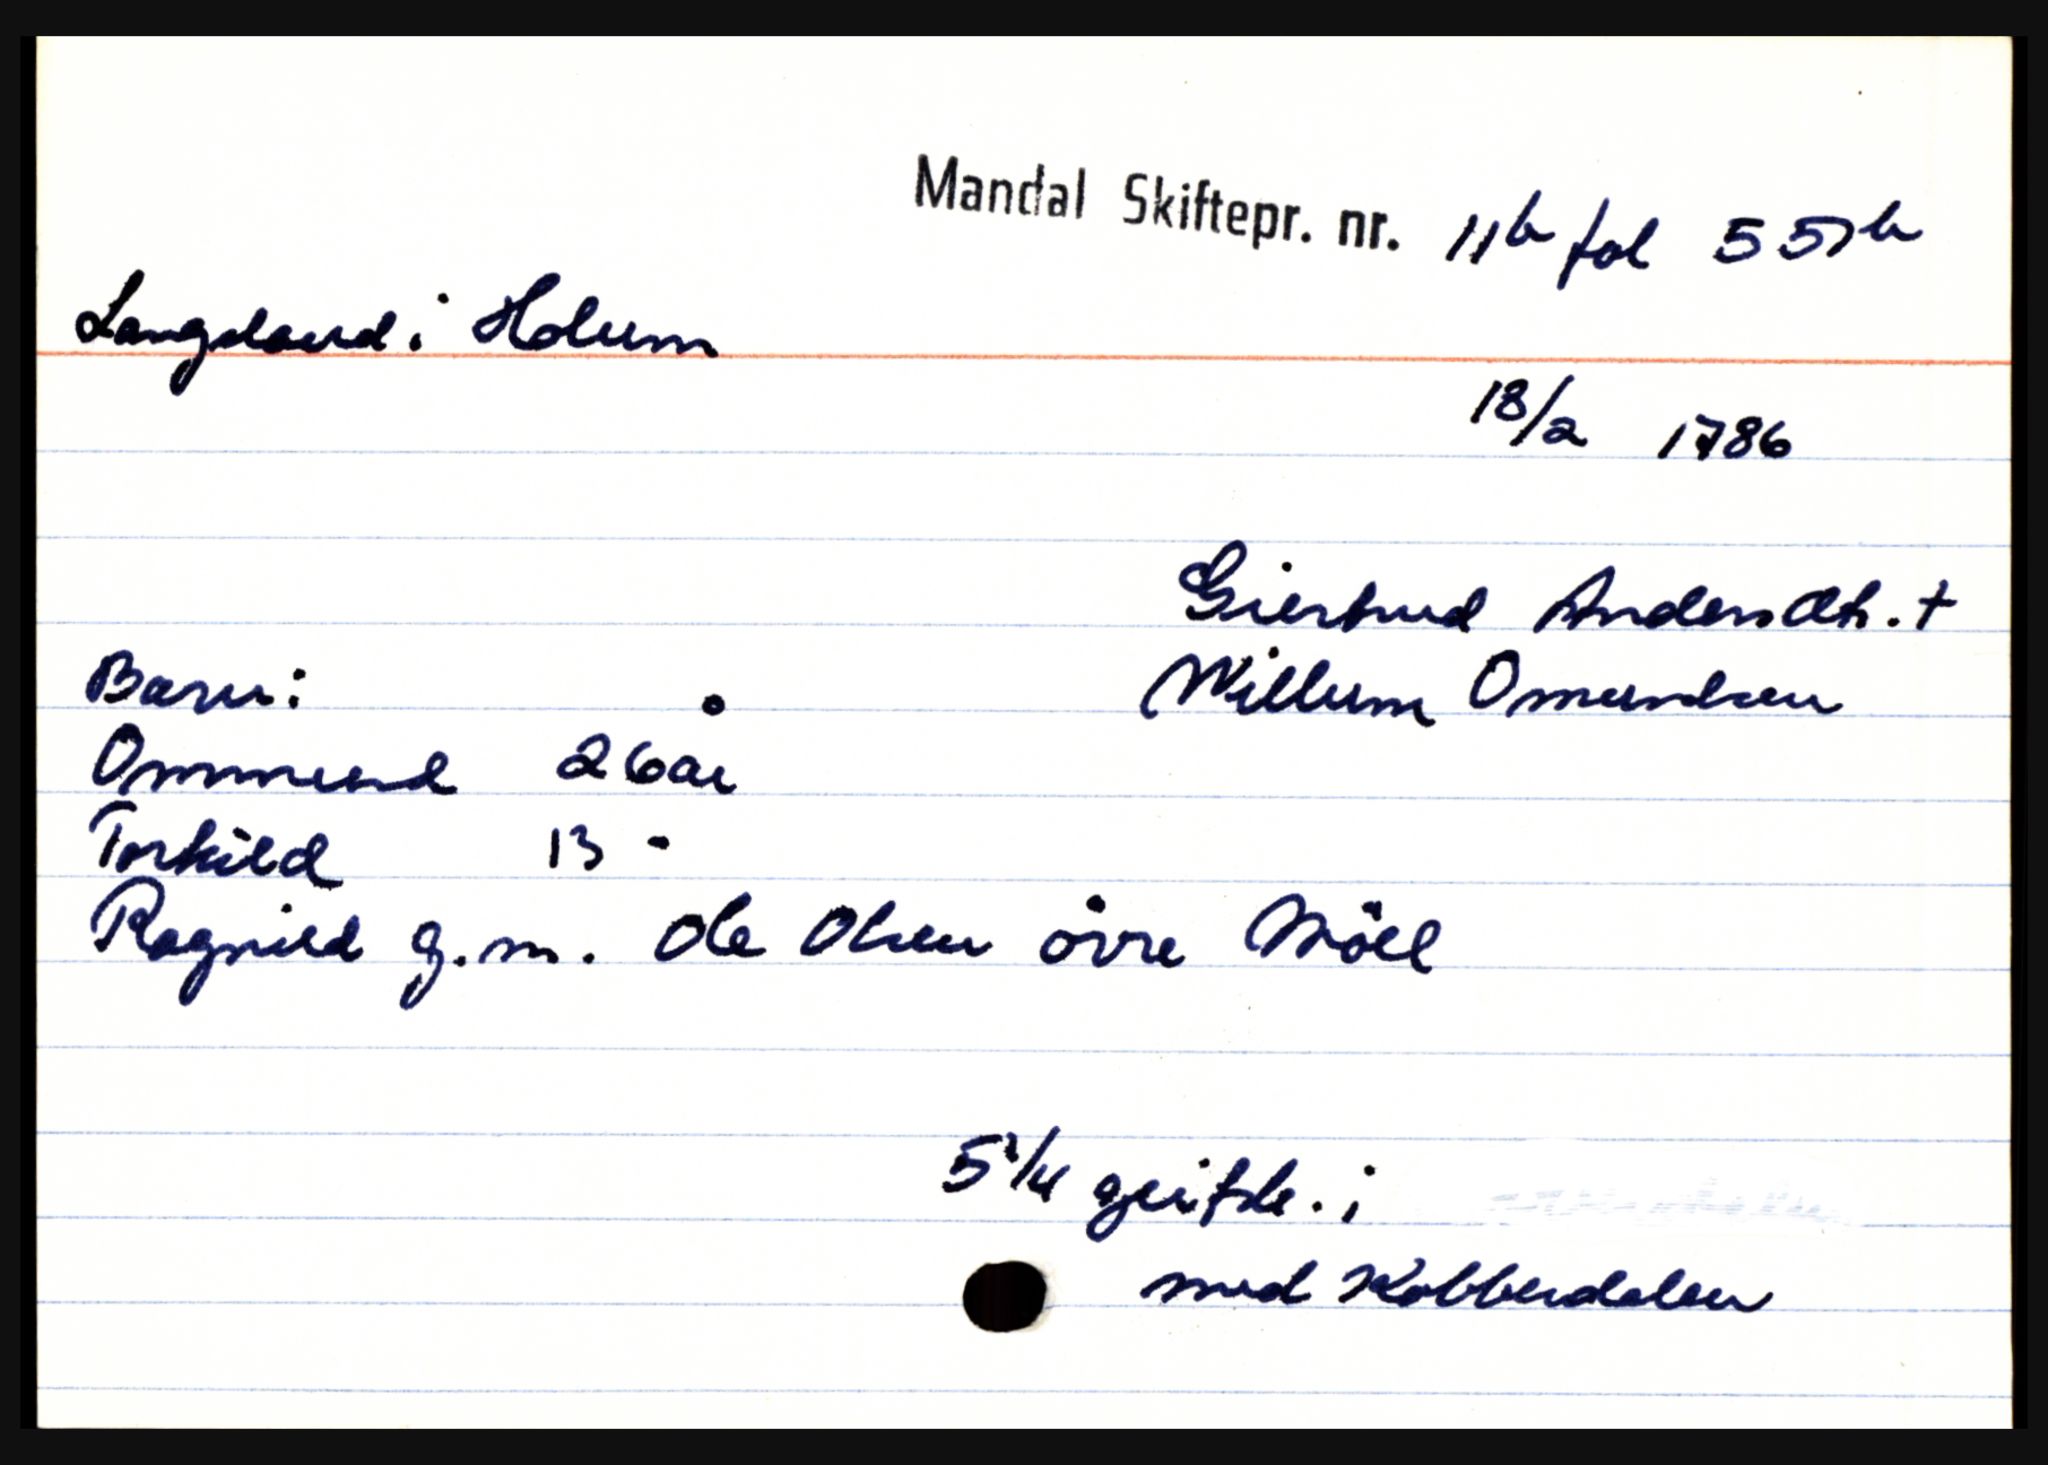 Mandal Skiftepr. nr. 11b fol 557b
Langeland i Holum
18/2 1786
Giertrud Andersdtr. +
Willum Omundsen
Barn:
Ommund 26 år
Torkild 13 -
Ragnild g.m. Ole Olsen øvre Möll
5 1/4 geitsk. i
med Kobberdalen